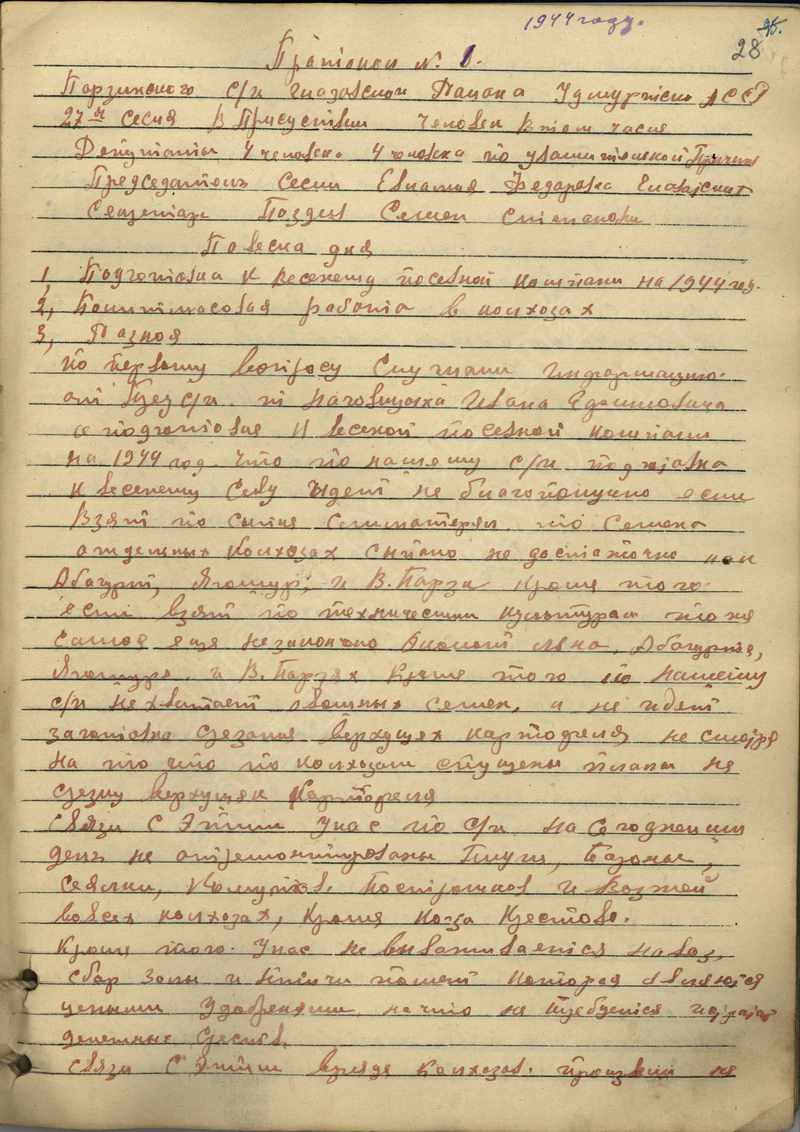 1944 году.
28
Протокол N. 1.
Парзинского с/с Глазовского Района Удмуртской АССР
27я сесия Присуствии Человек в том числе
Депутаты 4 человека 4 человека по уважительной Причин
Председатель Сесии
Секретарь Поздеев Семен Степанович
Повеска дня
1, Подготовка к весенему посевной кампани на 1944 год.
2, Политмасовая работа в колхозах
3, Разная
По первому вопросу Слушали информацию
от Пред с/с т Наговицына Ивана
о подготовке к весеной посевной кампани
на 1944 год. что по нашему с/с подготовка
к весенему севу идет не благополучно если
взять по сыпке семматерял. то Семена
отдельных Колхозах сыпано не достаточно как
Абагурт, и В. Парзи кроме того
если взять по техническим культурам тоже
самое еще незакончено льна, Абагурте,
и В. Парзях Кроме того по нашему
с/с не хватает овощных семен, и не идет
заготовка срезания верхушек картофеля не смотря
на то что по колхозам спущены планы на
срезку верхушек Картофеля
связи с этим Унас по с/с на Сегоднешни
день не отремонтированы Плуги, Бароны,
сеялки, Хомутов. Постромков и Вожжей
вовсех колхозах, Кроме Колхоза
Кроме того. Унас не вывативается навоз,
сбор золы и птичи помет которая является
ценыим Удобрением на что не требуется
денежных средств.
связи с этим вряде колхозов. прошлый не